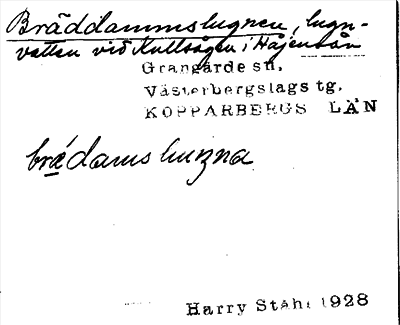 Bräddammslugnen, lugn-
vatten vid Kullsågen i Håjenån
Grangärde sn,
Västerbergslags tg,
KOPPARBERGS LÄN
brǽdams luŋna
Harry Ståhl 1928